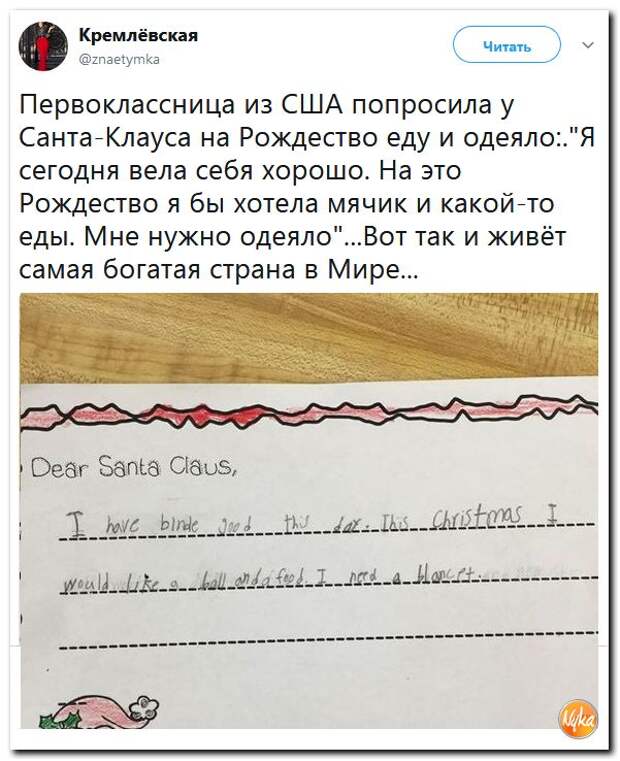 Кремлёвская
@znaetymka
Читать
Первоклассница из США попросила у
Санта-Клауса на Рождество еду и одеяло:."Я
сегодня вела себя хорошо. На это
Рождество я бы хотела мячик и какой-то
еды. Мне нужно одеяло"...Вот так и живёт
самая богатая страна в Мире...
Dear Santa Claus,
I have binde good this day. This Christmas I
would like a ball and a food. I need a blancet.
Nyka